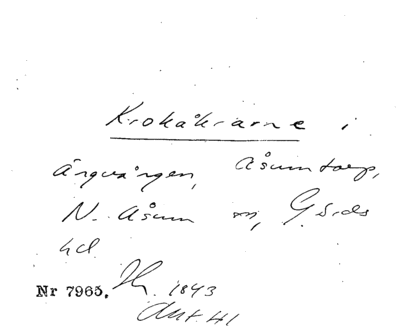 Krokåkrarne i
Ängvången, Åsumtorp,
N. Åsum sn, Gärds
hd.
Nr 7965. 1843
Akt 41